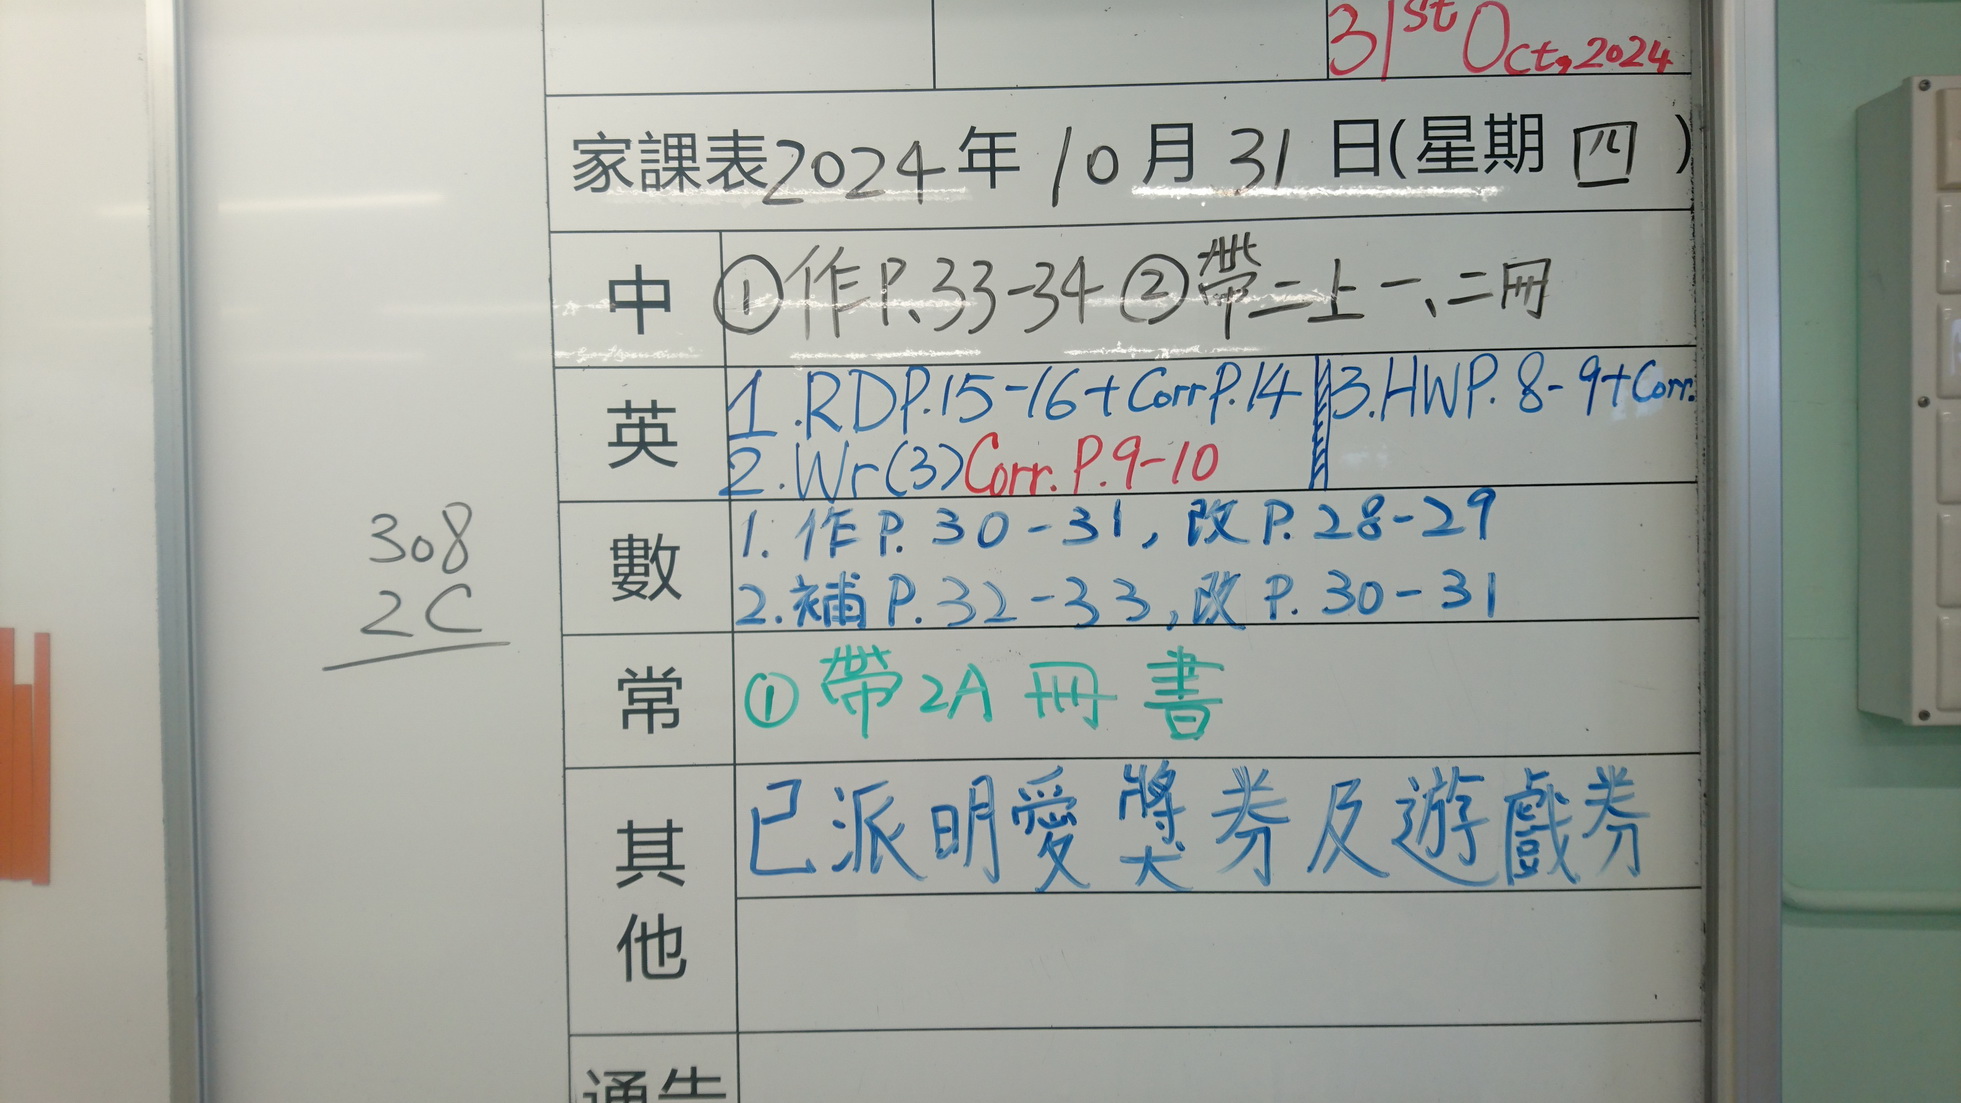 31st Oct, 2024
家課表2024年10月31日(星期四)
中 ①作P.33-34 ②帶二上一、二冊
英 1.RDP.15-16+Corr P.14 3.HWP.8-9+Corr.
2.Wr(3)Corr.P.9-10
數 1.作P.30-31,改P.28-29
2.補P.32-33,改P.30-31
常 ①帶2A冊書
其他 已派明愛獎券及遊戲券
通告
308
2C